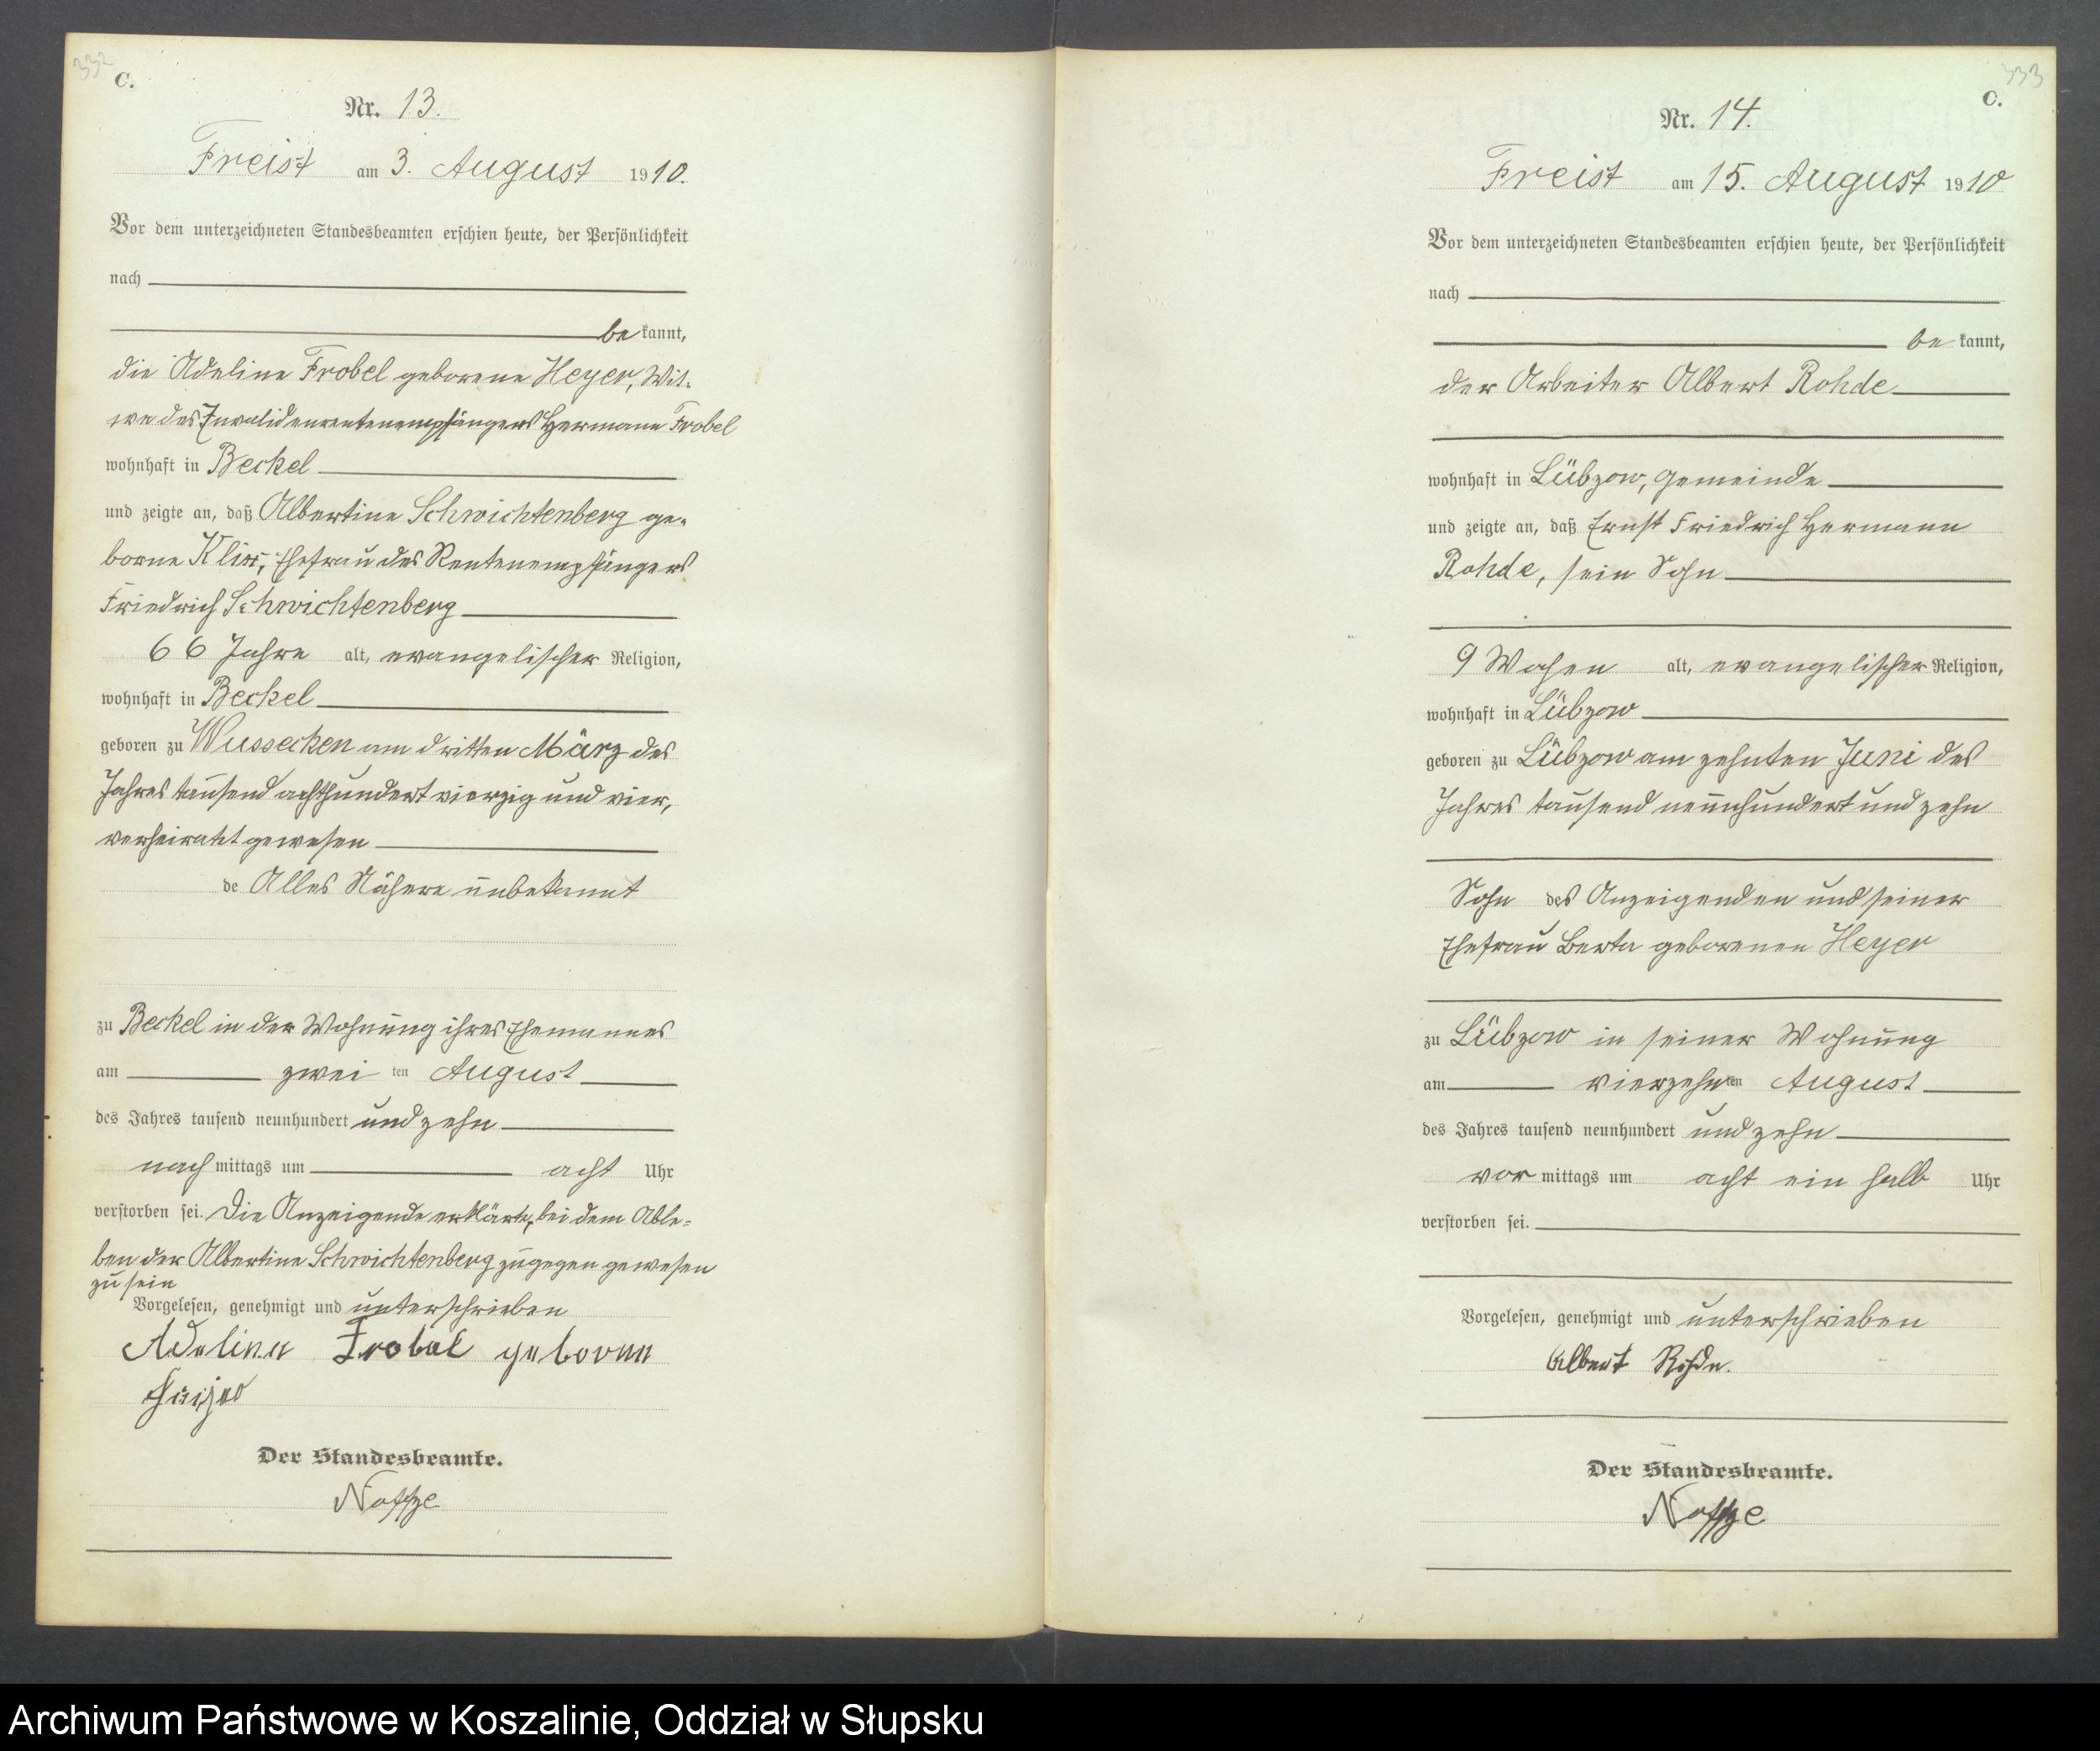 332
C.
Nr. 13.
Freist am 3. August 1910.
Vor dem unterzeichneten Standesbeamten erschien heute, der Persönlichkeit
nach
be kannt,
die Adeline Frobel geborene Heyer, Wit-
we des Invalidenrentenempfängers Hermann Frobel
wohnhaft in Beckel
und zeigte an, daß Albertine Schwichtenberg ge-
borne Klix, Ehefrau des Rentenempfängers
Friedrich Schwichtenberg
66 Jahre alt, evangelischer Religion,
wohnhaft in Beckel
geboren zu Wussecken am dritten März des
Jahres tausend achthundert vierzig und vier,
verheiratet gewesen
de Alles Nähere unbekannt
zu Beckel in der Wohnung ihres Ehemannes
am zwei ten August
des Jahres tausend neunhundert und zehn
nach mittags um acht Uhr
verstorben sei. Die Anzeigende erklärte, bei dem Able-
ben der Albertine Schwichtenberg zugegen gewesen
zu sein
Vorgelesen, genehmigt und unterschrieben
Adeline Frobel geborne
Heijer
Der Standesbeamte.
Noffze
333
C.
Nr. 14.
Freist am 15. August 1910
Vor dem unterzeichneten Standesbeamten erschien heute, der Persönlichkeit
nach
be kannt,
der Arbeiter Albert Rohde
wohnhaft in Lübzow, Gemeinde
und zeigte an, daß Ernst Friedrich Hermann
Rohde, sein Sohn
9 Wochen alt, evangelischer Religion,
wohnhaft in Lübzow
geboren zu Lübzow am zehnten Juni des
Jahres tausend neunhundert und zehn
Sohn des Anzeigenden und seiner
Ehefrau Berta geborenen Heyer
zu Lübzow in seiner Wohnung
am vierzehn ten August
des Jahres tausend neunhundert und zehn
vor mittags um acht ein halb Uhr
verstorben sei.
Vorgelesen, genehmigt und unterschrieben
Albert Rohde.
Der Standesbeamte.
Noffze
Archiwum Państwowe w Koszalinie, Oddział w Słupsku